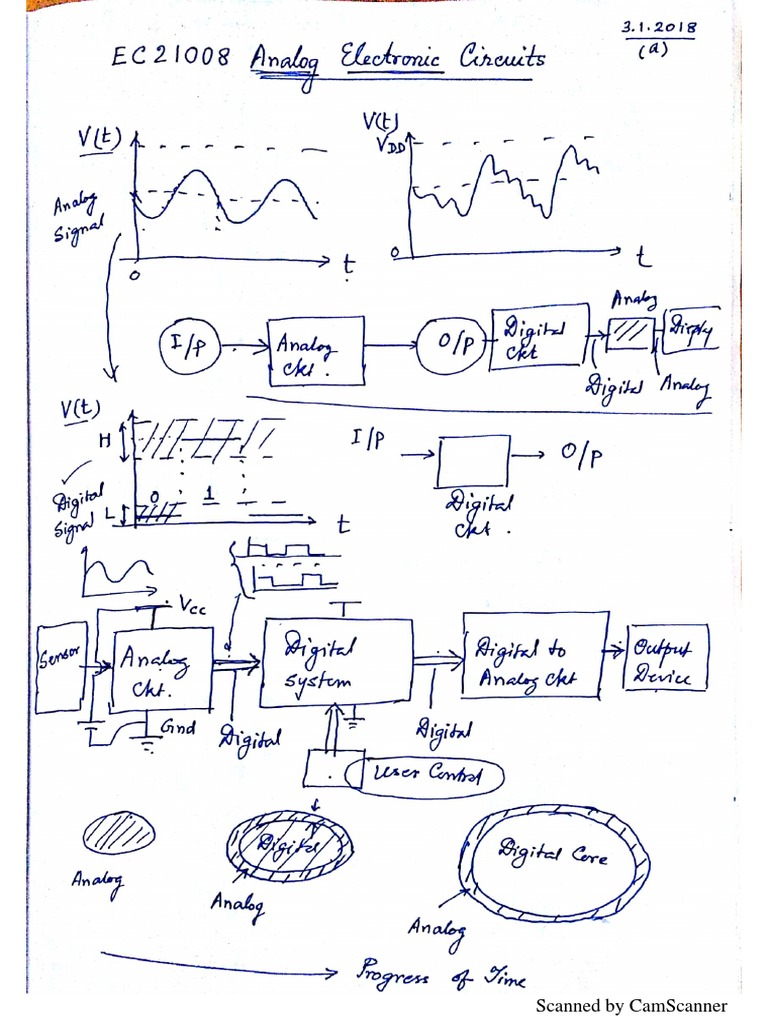 3.1.2018
(a)
EC21008 Analog Electronic Circuits
V(t)
Analog
Signal
0
t
V(t)
VDD
0
t
I/P
Analog
Ckt.
O/P
Digital
Ckt
Analog
Digital
Analog
V(t)
H
Digital
Signal
L
0
1
t
I/P
O/P
Digital
Ckt.
Vcc
Sensor
Analog
Ckt.
Gnd
Digital
Digital
System
Digital
Digital to
Analog Ckt
Output
Device
User Control
Analog
Digital
Analog
Digital Core
Analog
Progress of Time
Scanned by CamScanner